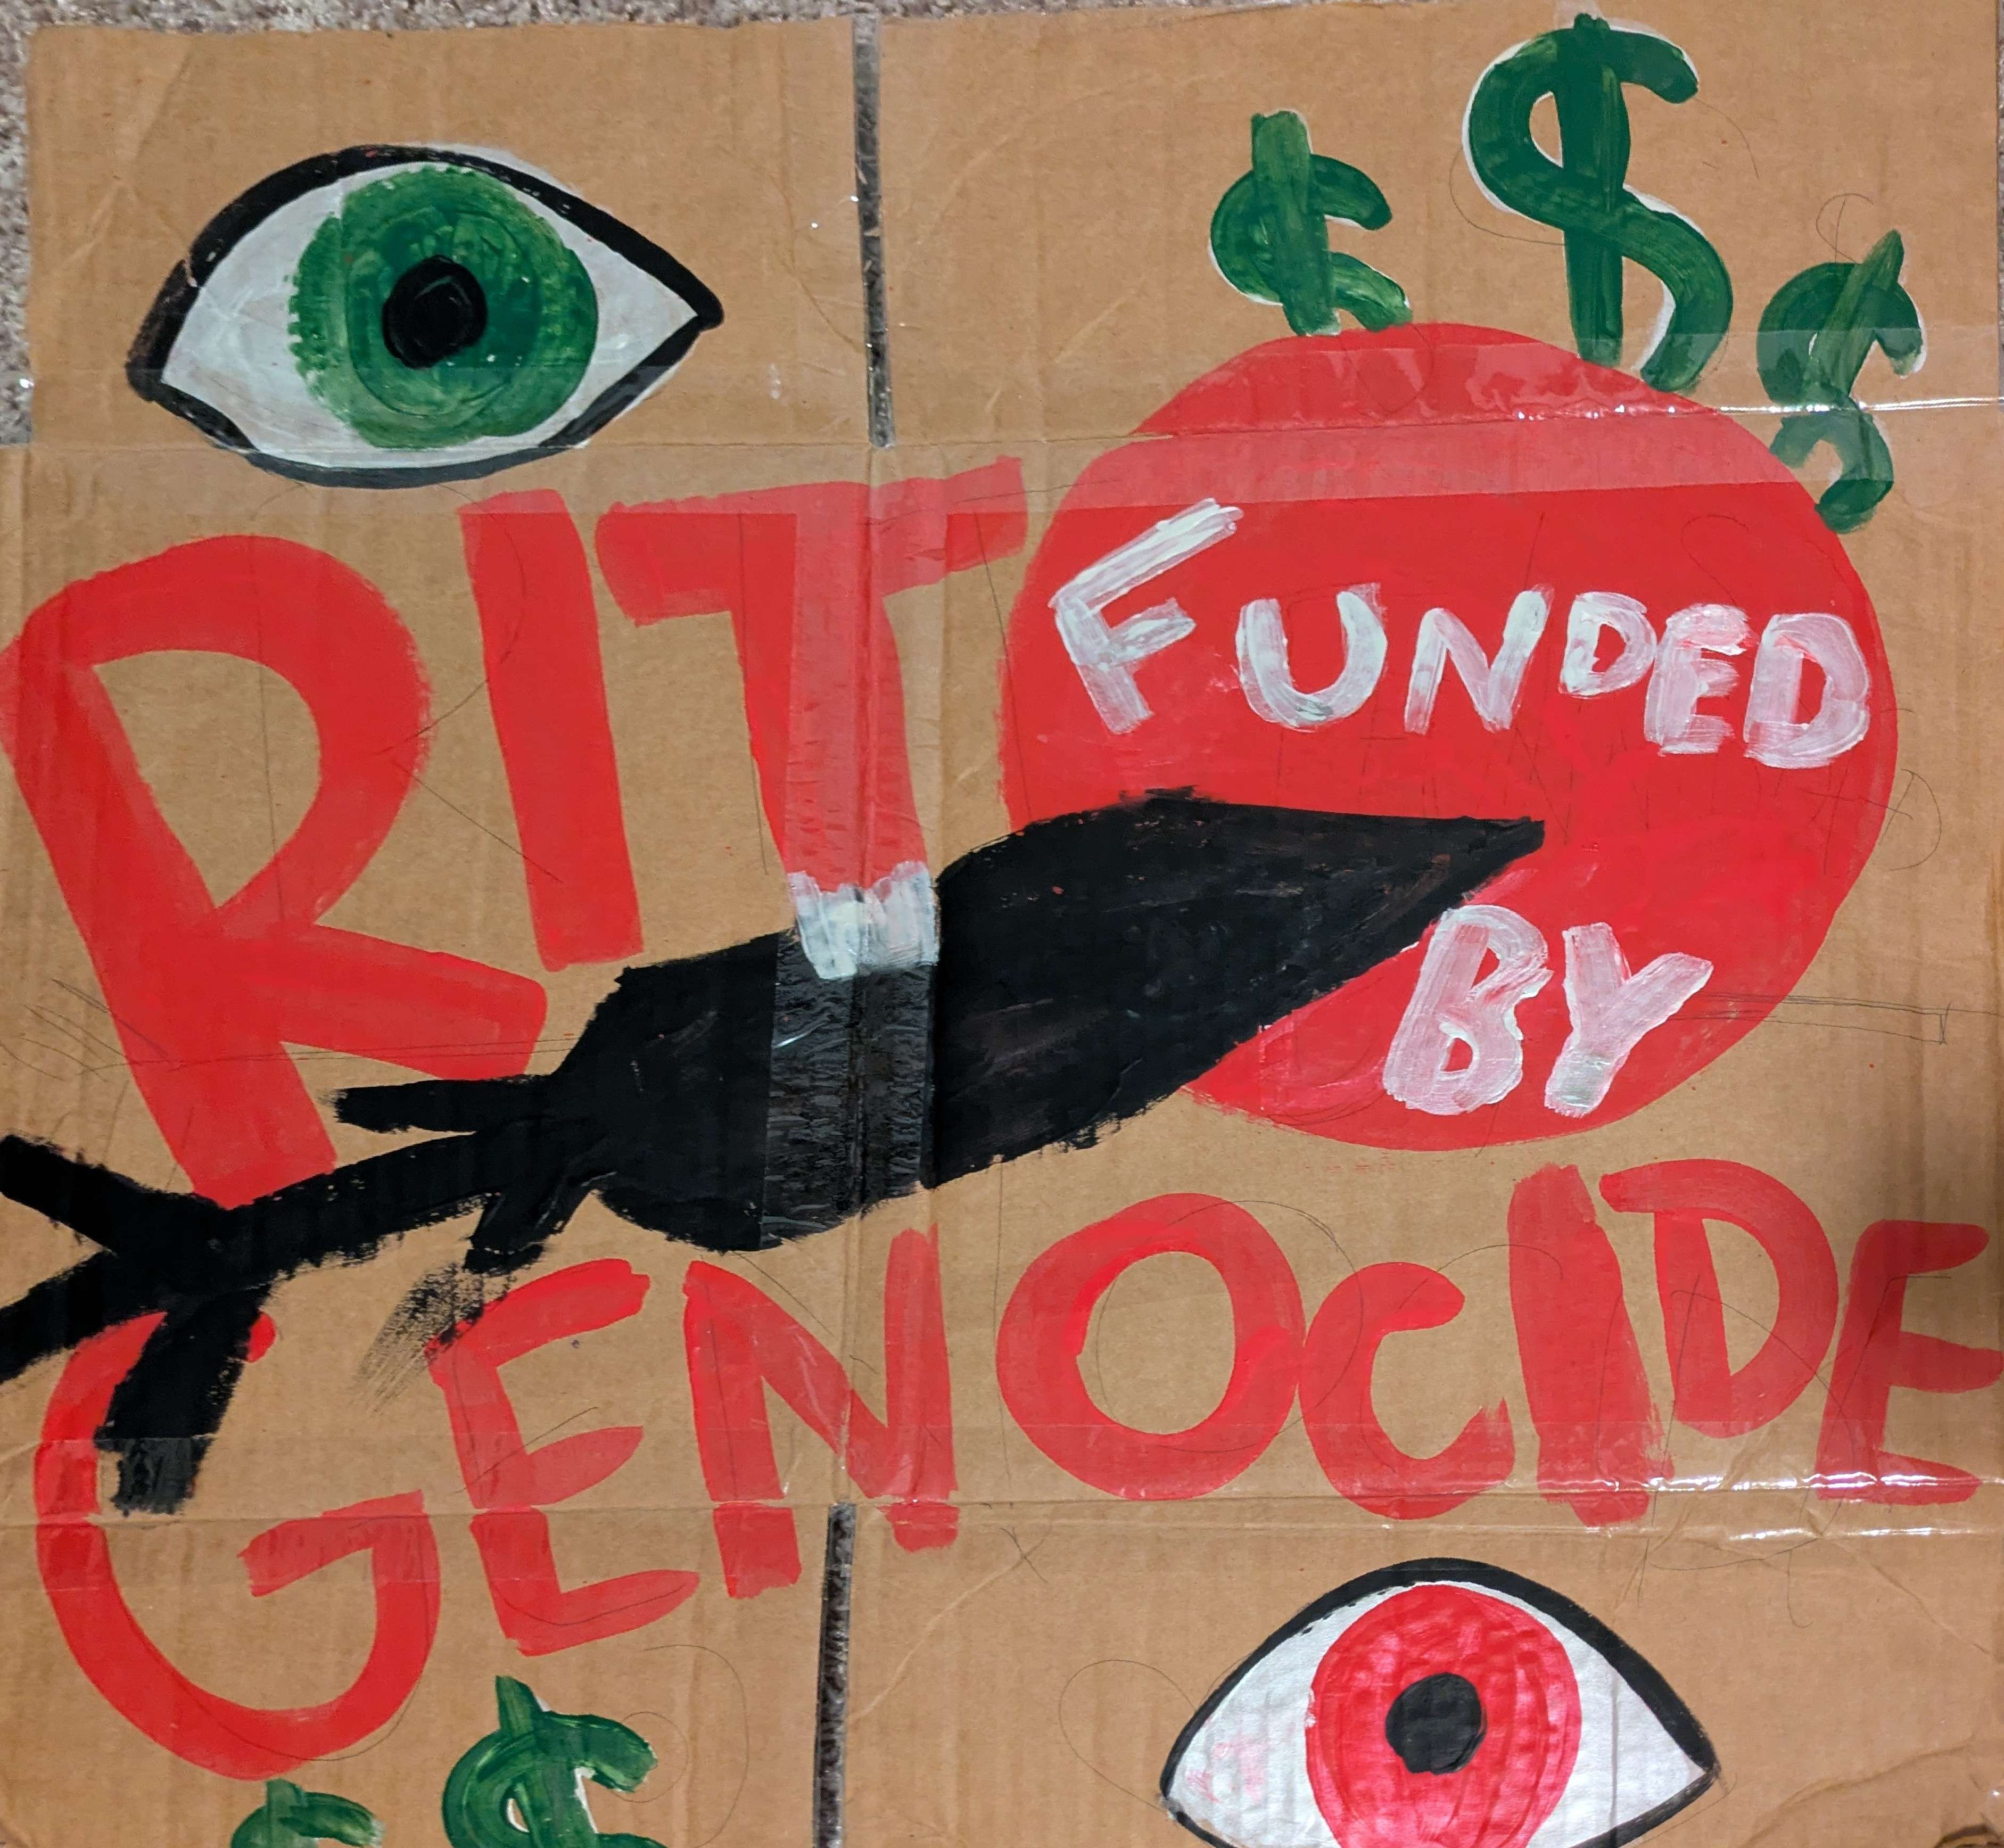 $ $ $
RIT
FUNDED
BY
GENOCIDE
$ $